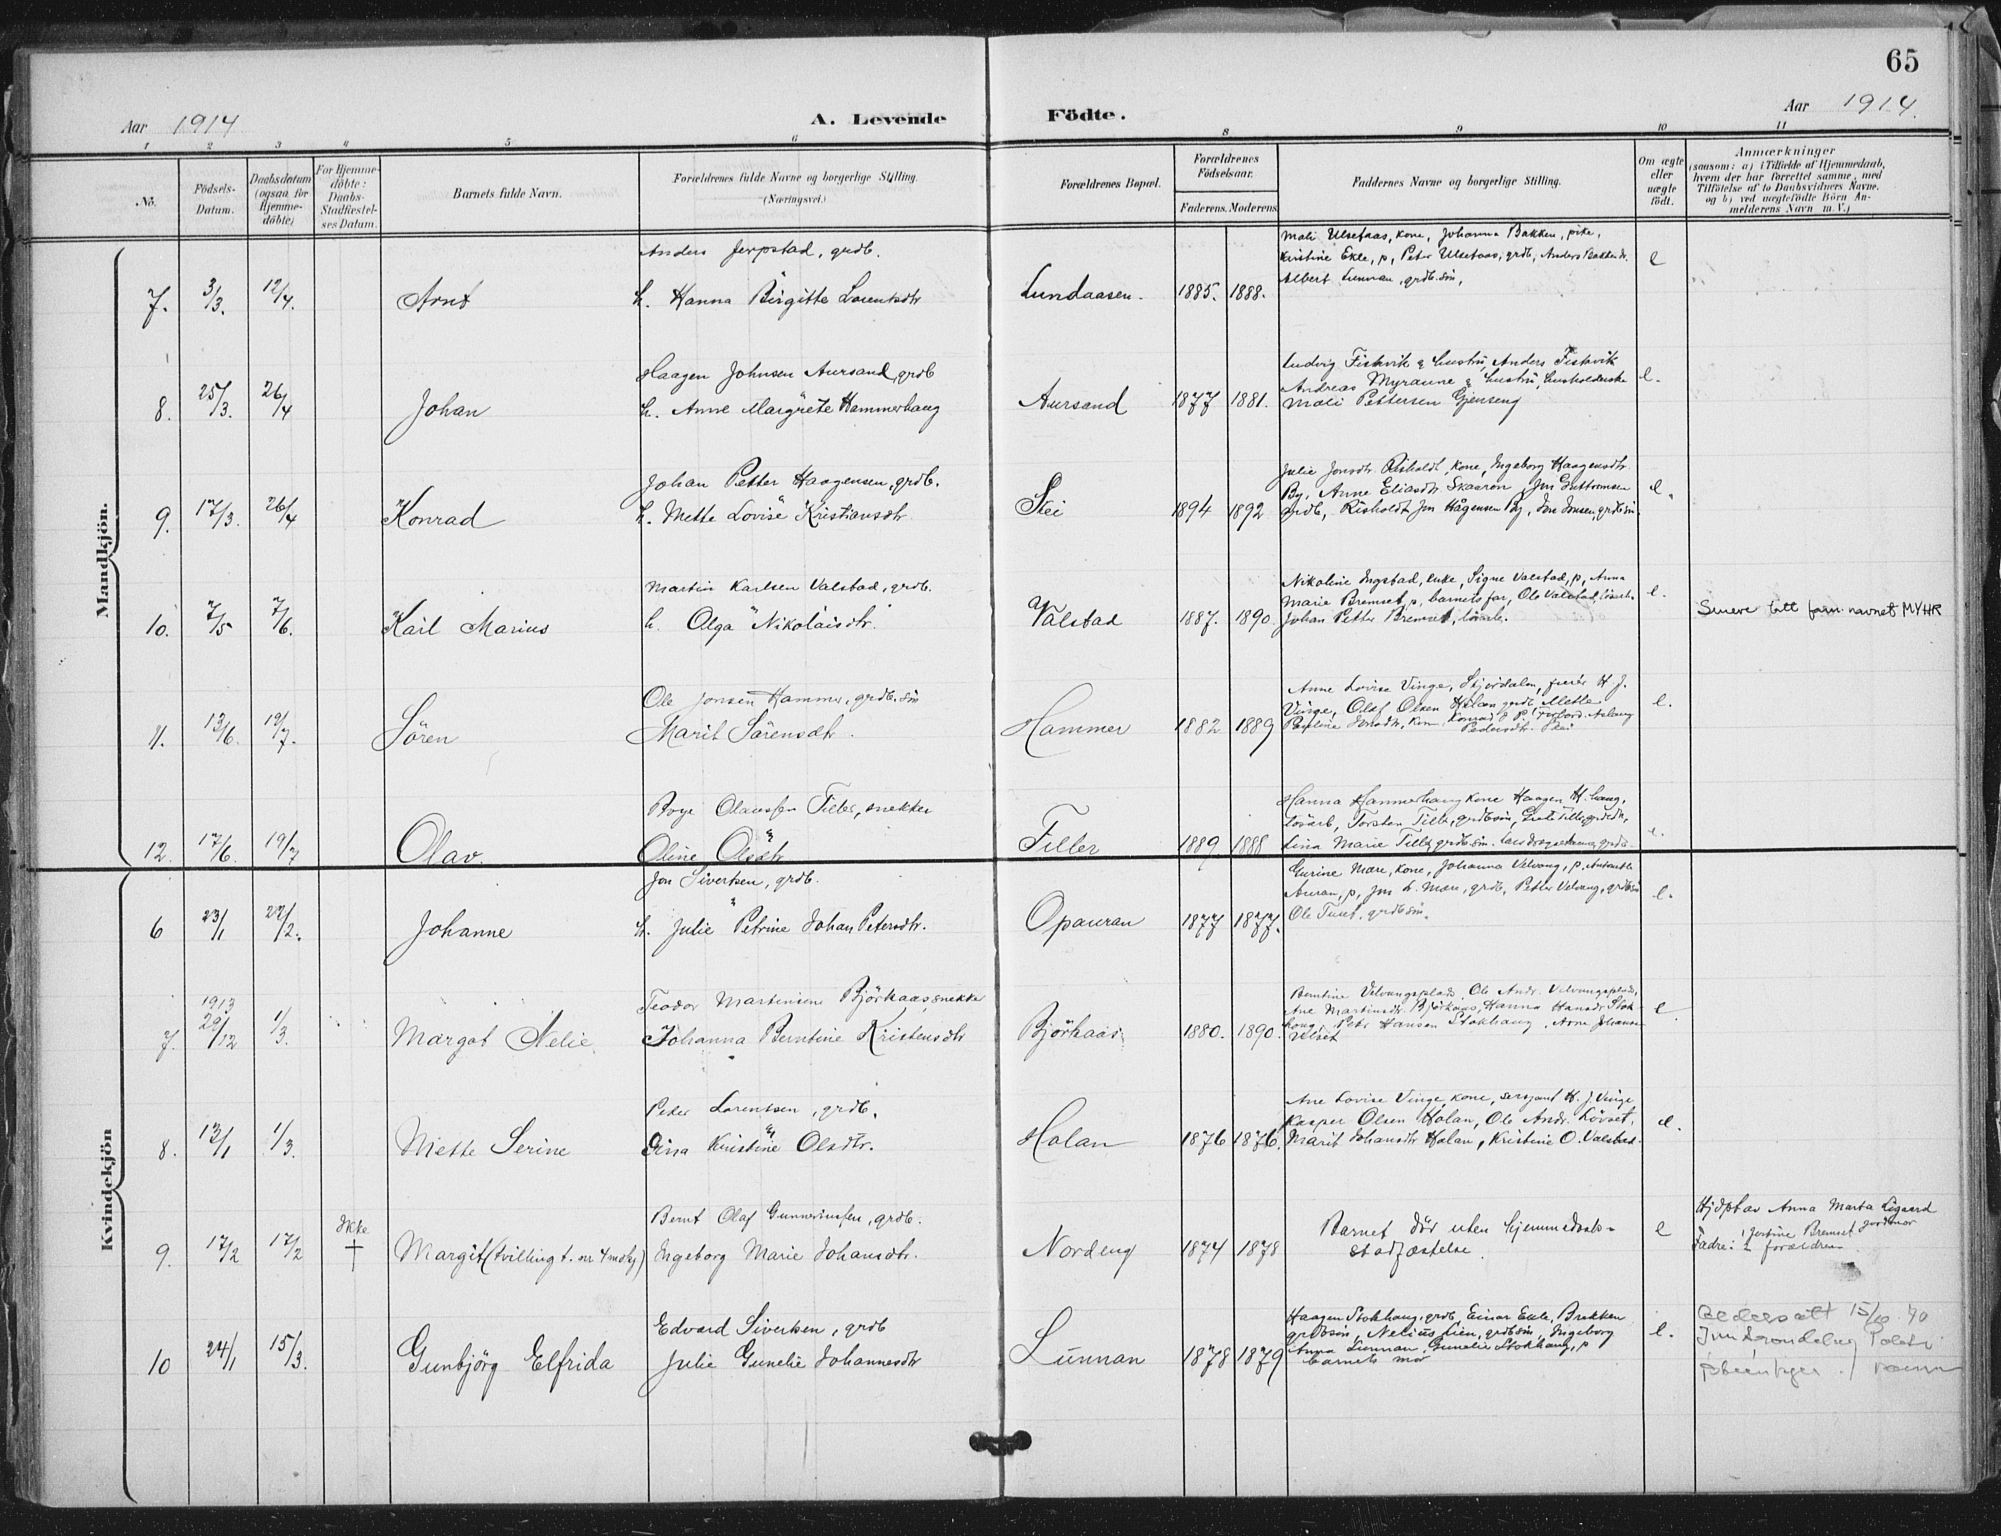 65
Aar 1914
A. Levende Födte.
Aar 1914.
1 2 3 4 5 6 8 9 10 11
No.
Födsels-Datum.
Daabsdatum (ogsaa for Hjemme-döbte)
For Hjemme-döbte: Daabs-Stadfæstel-ses Datum.
Barnets fulde Navn.
Forældrenes fulde Navne og borgerlige Stilling.
(Næringsvei.)
Forældrenes Bopæl.
Forældrenes Födselsaar.
Faderens. Moderens
Faddernes Navne og borgerlige Stilling.
Om ægte eller uægte födt.
Anmærkninger
(saasom: a) i Tilfælde af Hjemmedaab,
hvem der har forrettet samme, med
Tilföielse af to Daabsvidners Navne.
og b) ved uægtefödte Börn An-
melderens Navn m. V.)
Mandkjön.
7. 3/3. 12/4. Arnt
Anders Jerpstad, grdb.
h. Hanna Birgitte Lorentsdtr
Lundaasen. 1885. 1888.
Mali Ulsetaas, kone, Johanna Bakken, pike,
Kristine Ekle, p, Peter Ulsetaas, grdb, Anders Bakken
Albert Lunnan, grdb.sön,
e
8. 25/3. 26/4 Johan
Haagen Johnsen Aursand, grdb
h. Anne Margrete Hammerhaug
Aursand 1877 1881.
Ludvig Fiskvik & hustru, Anders Fiskvik
Andreas Myraune & hustru, husholderske
Mali Pettersen Gjenseng
e.
9. 17/3. 26/4 Konrad
Johan Petter Haagensen, grdb.
h. Mette Lovise Kristiansdtr
Skei 1894 1892
Julie Jonsdtr Risholdt, kone, Ingeborg Haagensdtr
By, Anne Eliasdtr Skaaren, Jon Guttormsen
grdb, Risholdt Jon Hågensen By, Jon Jonsen, grdb.sön.
e.
10. 7/5 7/6. Karl Marius
Martin Karlsen Valstad, grdb.
h. Olga Nikolaisdtr.
Valstad 1887. 1890.
Nikoline Ingstad, enke, Signe Valstad, p, Anna
Marie Bremset, p, barnets far, Ole Valstad, lösarb.
Johan Petter Bremset, lösarb.
e.
Senere tatt fam. navnet MYHR
11. 13/6. 19/7. Sören
Ole Jonsen Hammer, grdb.sön
Marit Sörensdtr.
Hammer 1882 1889
Anne Lovise Vinge, Stjördalen, furer H. J.
Vinge, Olaf Olsen Holan grdb, Mette
Pauline Jonsdtr, kone, Konrad P. Aslaug
Pedersdtr. Skei
e.
12. 17/6. 19/7 Olav.
Olaussen Tiller, snekker
Oline Olsdtr
Tiller 1889 1888
Hanna Hammerhaug kone Haagen H. haug,
lösarb, Torsten Tiller, grdb.sön,
Lina Marie Tiller, grdb.sön.
e.
Kvindekjön
6 23/1 22/2. Johanne
Jon Sivertsen, grdb.
h. Julie Petrine Johan Petersdtr.
Opauran 1877 1877.
Gurine Mære, kone, Johanna Velvang, p.
Auran, p, Jon L. Mære, grdb, Petter Velvang, grdb.sön
Ole Tuset, grdb.sön.
e.
7. 1913 29/12 1/3. Margot Nelie
Teodor Martinsen Björkaas, snekker
Johanna Berntine Kristensdtr
Björkaas 1880. 1890.
Berntine Velvangsplads, Ole Andr. Velvangsplads,
Ane Martinsdtr Björkaas, Hanna Hansdtr Stok-
haug, Peter Hansen Stokhaug, Arne Johansen
Ulset
e.
8. 13/1 1/3. Mette Serine
Peter Lorentsen, grdb.
Gina Kristine Olsdtr.
Holan 1876 1876.
Ane Lovise Vinge, kone, sersjant H. J. Vinge
Kasper Olsen Holan, Ole Andr. Lövset,
Marit Johansdtr Holan, Kristine O. Valstad.
e.
9. 17/2 17/2 Ikke † Margit (tvilling t. nr 4 mdkj)
Bernt Olaf Gunneriussen, grdb.
Ingeborg Marie Johansdtr.
Nordeng 1874 1878
Barnet död uten hjemmedaabs-
stadfæstelse.
e
Hjdpt av Anna Marta Ligaard
jordmor
Fadre: 1 Justine Bremset
2 forældrene
10 24/1 15/3. Gunbjörg Elfrida
Edvard Sivertsen, grdb
Julie Gunelie Johannesdtr
Lunnan 1878 1879
Haagen Stokhaug, grdb, Einar Ekle, Brekken
grdbsön, Nelius Lien, grdb.sön, Ingeborg
Anna Lunnan, Gunelie Stokhaug, p
barnets mor
e.
Aldersatt 15/10 40